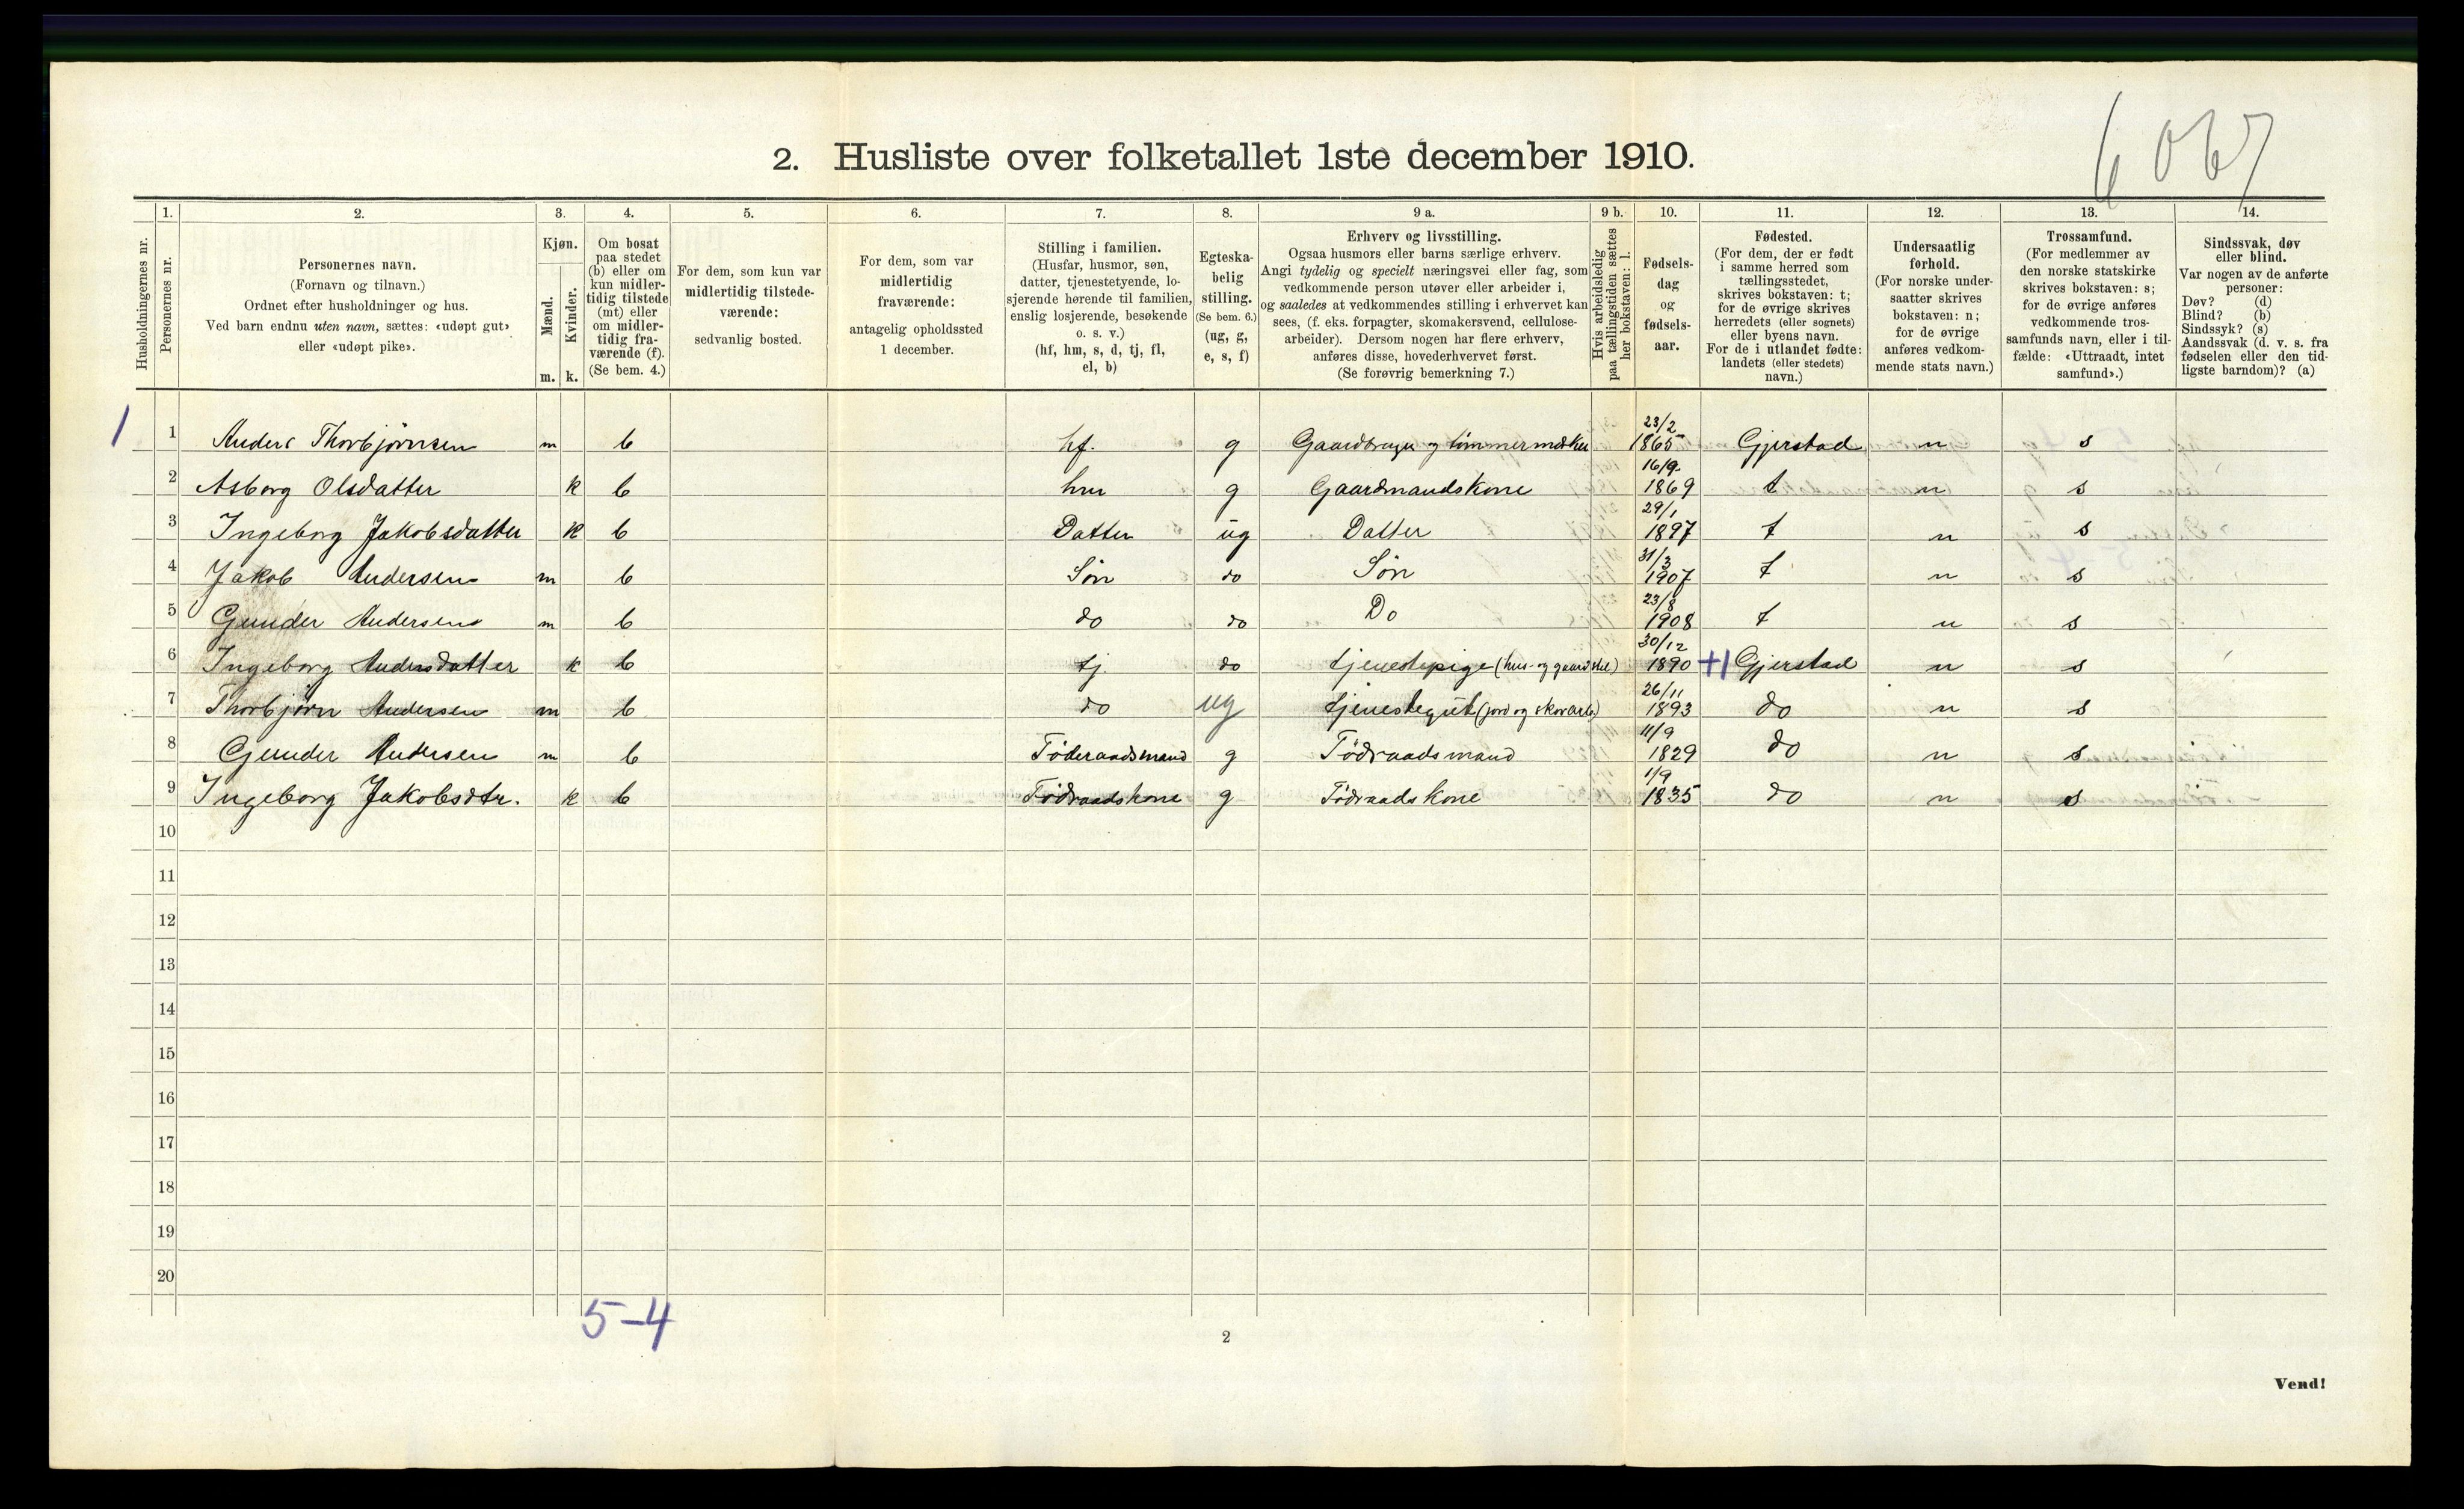 6067
2. Husliste over folketallet 1ste december 1910.
Husholdningernes nr.
1.
Personernes nr.
2.
Personernes navn.
(Fornavn og tilnavn.)
Ordnet efter husholdninger og hus.
Ved barn endnu uten navn, sættes: «udøpt gut»
eller «udøpt pike».
3.
Kjøn.
Mænd.
m.
Kvinder.
k.
4.
Om bosat
paa stedet
(b) eller om
kun midler-
tidig tilstede
(mt) eller
om midler-
tidig fra-
værende (f).
(Se bem. 4.)
5.
For dem, som kun var
midlertidig tilstede-
værende:
sedvanlig bosted.
6.
For dem, som var
midlertidig
fraværende:
antagelig opholdssted
1 december.
7.
Stilling i familien.
(Husfar, husmor, søn,
datter, tjenestetyende, lo-
sjerende hørende til familien,
enslig losjerende, besøkende
o. s. v.)
(hf, hm, s, d, tj, fl,
el, b)
8.
Egteska-
belig
stilling.
(Se bem. 6.)
(ug, g,
e, s, f)
9 a.
Erhverv og livsstilling.
Ogsaa husmors eller barns særlige erhverv.
Angi tydelig og specielt næringsvei eller fag, som
vedkommende person utøver eller arbeider i,
og saaledes at vedkommendes stilling i erhvervet kan
sees, (f. eks. forpagter, skomakersvend, cellulose-
arbeider). Dersom nogen har flere erhverv,
anføres disse, hovederhvervet først.
(Se forøvrig bemerkning 7.)
9 b.
Hvis arbeidsledig
paa tællingstiden sættes
her bokstaven: l.
10.
Fødsels-
dag
og
fødsels-
aar.
11.
Fødested.
(For dem, der er født
i samme herred som
tællingsstedet,
skrives bokstaven: t;
for de øvrige skrives
herredets (eller sognets)
eller byens navn.
For de i utlandet fødte:
landets (eller stedets)
navn.)
12.
Undersaatlig
forhold.
(For norske under-
saatter skrives
bokstaven: n;
for de øvrige
anføres vedkom-
mende stats navn.)
13.
Trossamfund.
(For medlemmer av
den norske statskirke
skrives bokstaven: s;
for de øvrige anføres
vedkommende tros-
samfunds navn, eller i til-
fælde: «Uttraadt, intet
samfund».)
14.
Sindssvak, døv
eller blind.
Var nogen av de anførte
personer:
Døv? (d)
Blind? (b)
Sindssyk? (s)
Aandssvak (d. v. s. fra
fødselen eller den tid-
ligste barndom)? (a)
1 1 Anders Thorbjørnsen m b hf. g Gaardbruger og tømmermærker 23/2 1865 Gjerstad n s
2 Asborg Olsdatter k b hm g Gaardmandskone 16/9 1869 t n s
3 Ingeborg Jakobsdatter k b Datter ug Datter 29/1 1897 t n s
4 Jakob Andersen m b Søn do Søn 31/3 1907 t n s
5 Gunder Andersen m b do do Do 23/8 1908 t n s
6 Ingeborg Andersdatter k b tj. do tjenestepige (hus- og gaardstel) 30/12 1890 +1 Gjerstad n s
7 Thorbjørn Andersen m b do ug tjenestegut (jord og skovarb.) 26/11 1893 do n s
8 Gunder Andersen m b Føderaadsmand g Fødraadsmand 11/9 1829 do n s
9 Ingeborg Jakobsdtr. k b Fødraadskone g Fødraadskone 1/9 1835 do n s
10
11
12
13
14
15
16
17
18
19
20
5-4
2
Vend!